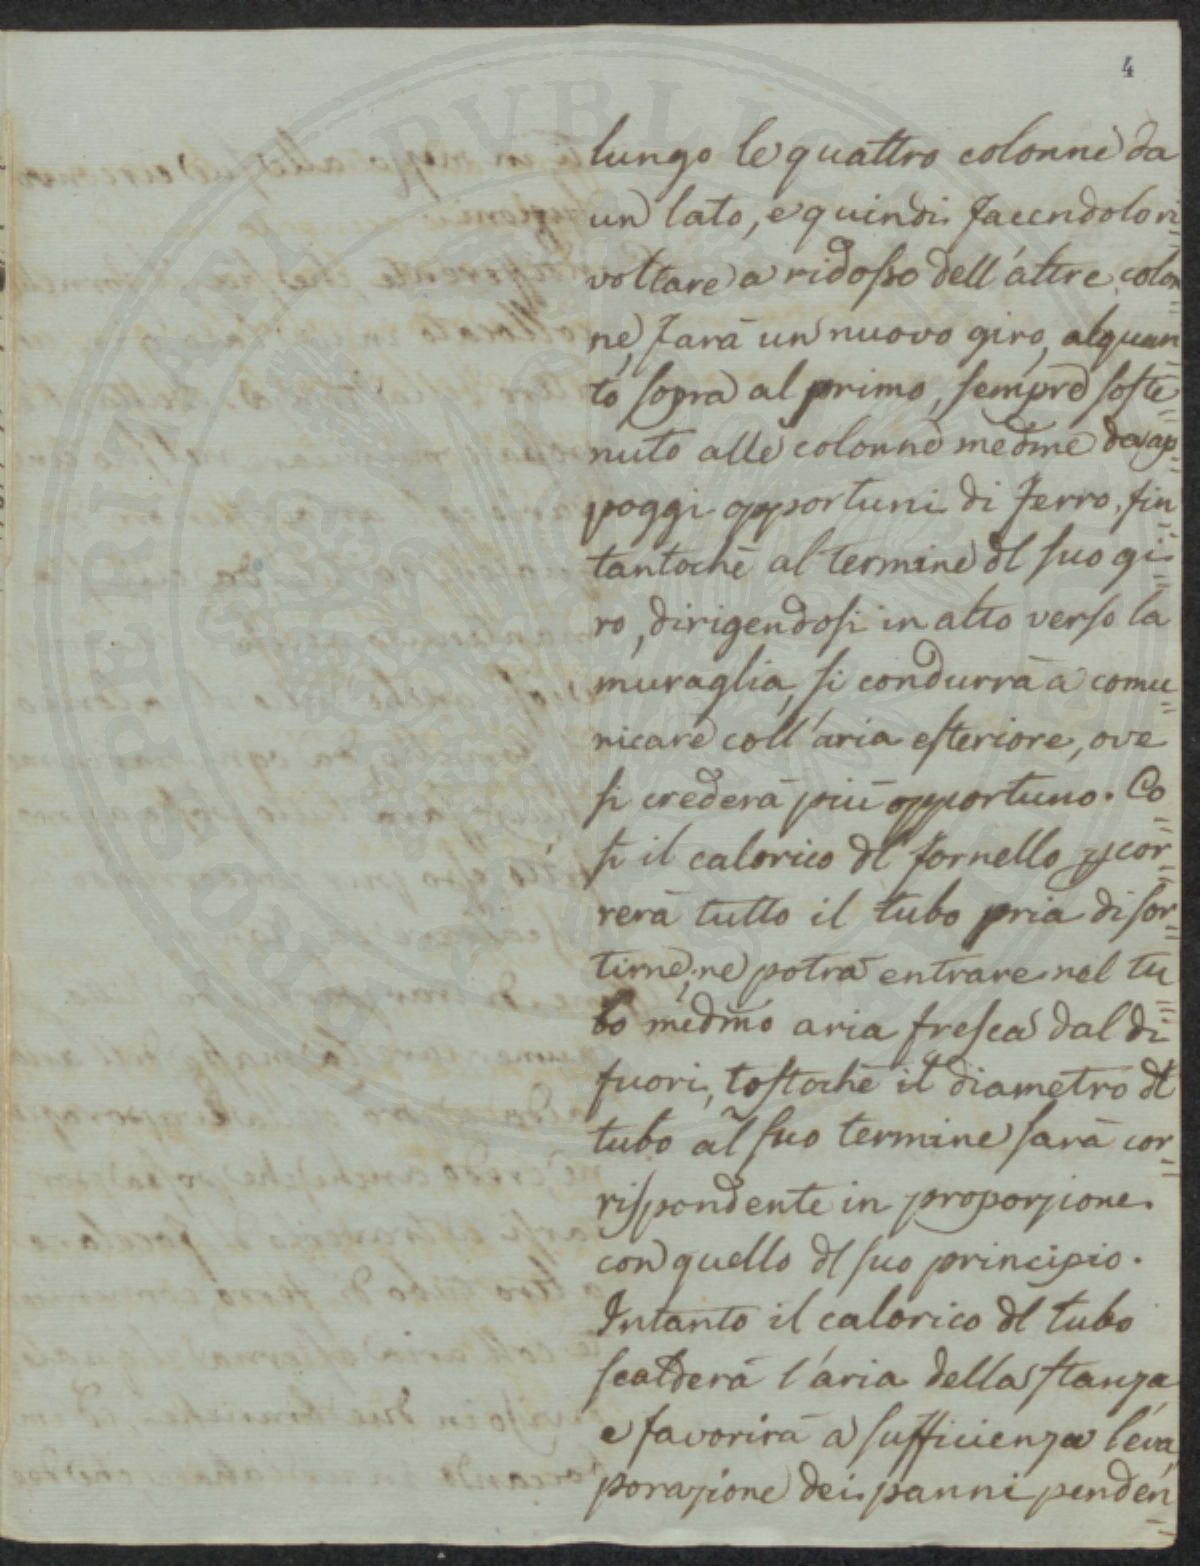 4
lungo le quattro colonne da
un lato, e quindi facendolo ri=
voltare a ridosso dell'altre colon=
ne, farà un nuovo giro, alquan=
to sopra al primo, sempre soste=
nuto alle colonne medme da ap=
poggi opportuni di ferro, fin=
tantochè al termine dl suo gi=
ro, dirigendosi in alto verso la
muraglia, si condurrà a comu=
nicare coll'aria esteriore, ove
si crederà più opportuno. Co=
sì il calorico dl fornello scor=
rerà tutto il tubo pria di sor=
tirne; ne potrà entrare nel tu=
bo medmo aria fresca dal di=
fuori, tostochè il diametro dl
tubo al suo termine sarà cor=
rispondente in proporzione
con quello dl suo principio.
Intanto il calorico dl tubo
scalderà l'aria della stanza
e favorirà a sufficienza l'eva=
porazione dei panni penden=
PROSPERITATI PUBLICAE